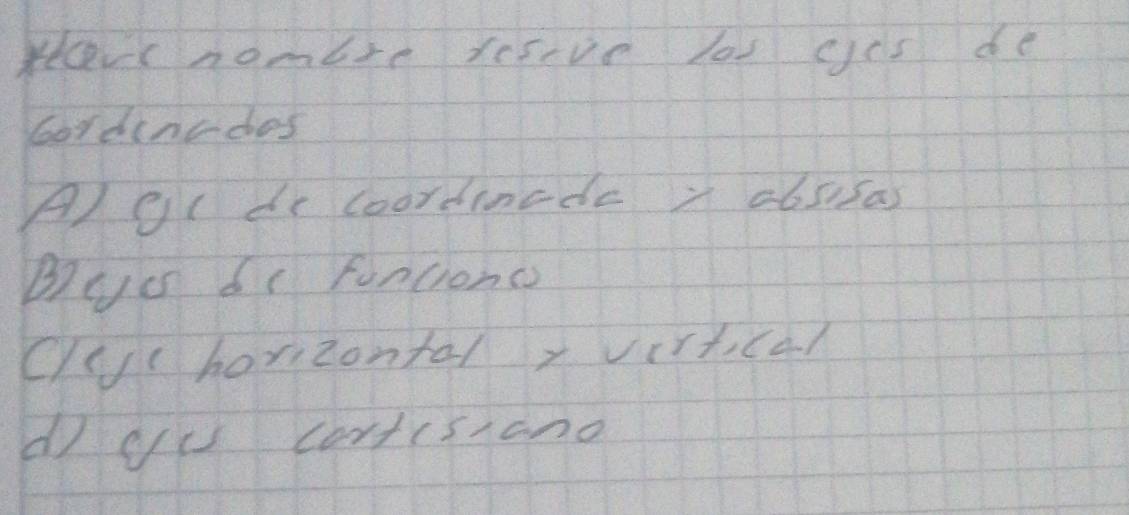 nombre resive los ejes de
cordenados
A) eje de coordenada y absisas
B) ejes de funciones
C) eje horizontal y vertical
d) ejes cartesiano